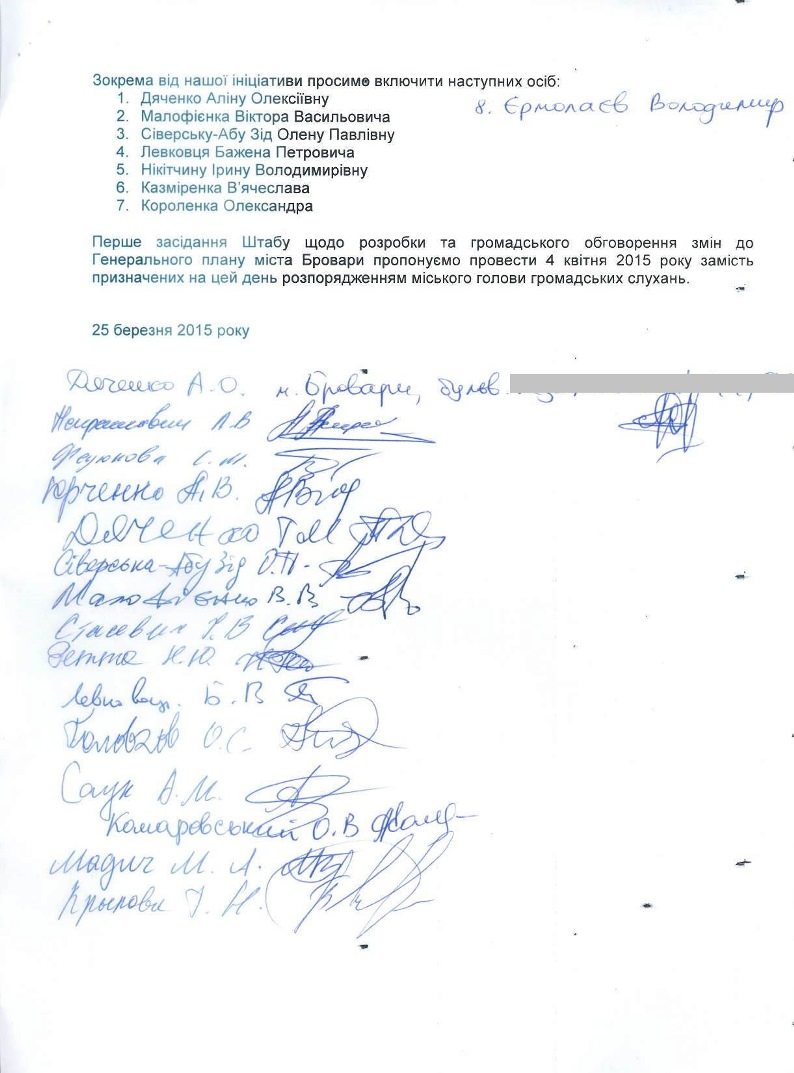 Зокрема від нашої ініціативи просимо включити наступних осіб:
1. Дяченко Аліну Олексіївну
8. Єрмолаєв Володимир
2. Малофієнка Віктора Васильовича
3. Сіверську-Абу Зід Олену Павлівну
4. Левковця Бажена Петровича
5. Нікітчину Ірину Володимирівну
6. Казміренка В'ячеслава
7. Короленка Олександра
Перше засідання Штабу щодо розробки та громадського обговорення змін до
Генерального плану міста Бровари пропонуємо провести 4 квітня 2015 року замість
призначених на цей день розпорядженням міського голови громадських слухань.
25 березня 2015 року
Дяченко А.О. м. Бровари, бульв.
Л.В
С.М.
Юрченко А.В.
Дяченко Т М
Сіверська-Абу Зід О.П.
Малофієнко В.В
Стасевич Т.В
Н.Ю.
Б.В
Головков О.С.
Саук А.М.
Комаровський О.В
Мадич М. Л.
Крылова Т. Н.